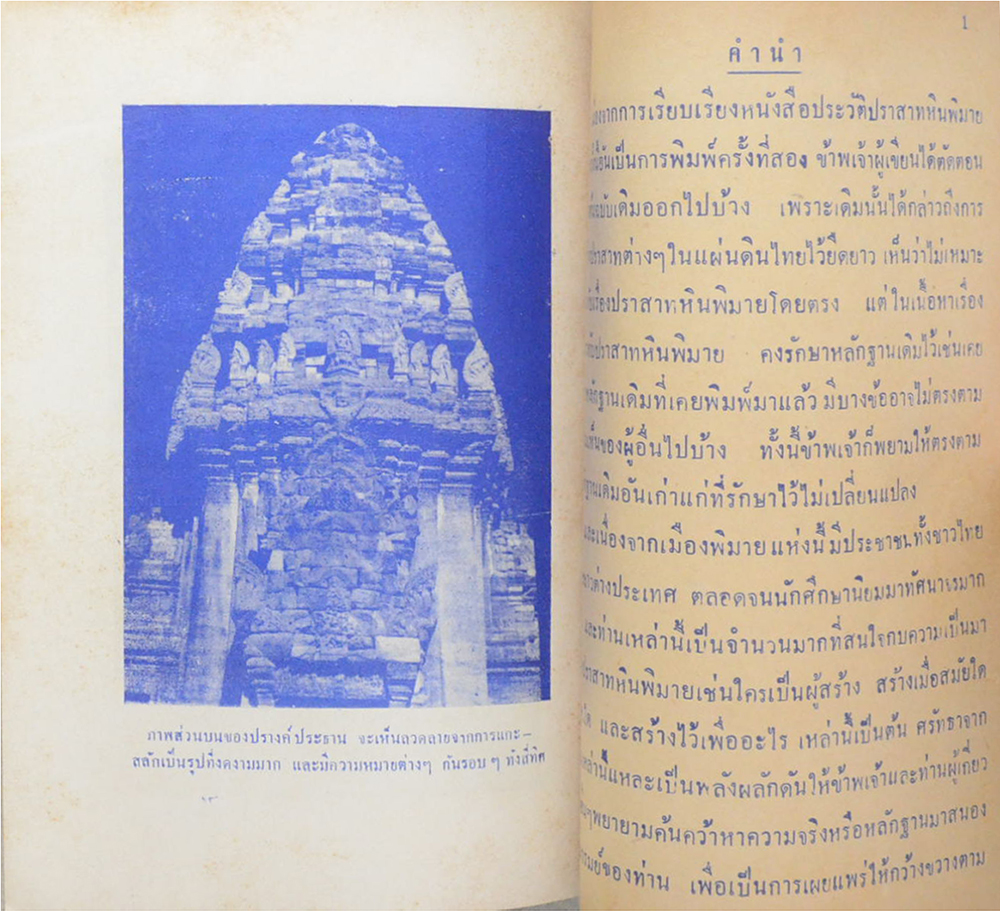 ภาพส่วนบนของปรางค์ประธาน จะเห็นลวดลายจากการแกะ-
สลักเป็นรูปที่งดงามมาก และมีความหมายต่างๆ กันรอบๆ ทั้งสี่ทิศ
1
คำนำ
จากการเรียบเรียงหนังสือประวัติปราสาทหินพิมาย
เป็นการพิมพ์ครั้งที่สอง ข้าพเจ้าผู้เขียนได้ตัดตอน
เดิมออกไปบ้าง เพราะเดิมนั้นได้กล่าวถึงการ
ปราสาทต่างๆในแผ่นดินไทยไว้ยืดยาว เห็นว่าไม่เหมาะ
เรื่องปราสาทหินพิมายโดยตรง แต่ในเนื้อหาเรื่อง
ปราสาทหินพิมาย คงรักษาหลักฐานเดิมไว้เช่นเคย
หลักฐานเดิมที่เคยพิมพ์มาแล้ว มีบางข้ออาจไม่ตรงตาม
ของผู้อื่นไปบ้าง ทั้งนี้ข้าพเจ้าก็พยามให้ตรงตาม
ฐานเดิมอันเก่าแก่ที่รักษาไว้ไม่เปลี่ยนแปลง
และเนื่องจากเมืองพิมายแห่งนี้มีประชาชนทั้งชาวไทย
ต่างประเทศ ตลอดจนนักศึกษานิยมมาทัศนาจรมาก
และท่านเหล่านี้เป็นจำนวนมากที่สนใจกบความเป็นมา
ปราสาทหินพิมายเช่นใครเป็นผู้สร้าง สร้างเมื่อสมัยใด
และสร้างไว้เพื่ออะไร เหล่านี้เป็นต้น ศรัทธาจาก
เหล่านี้แหละเป็นพลังผลักดันให้ข้าพเจ้าและท่านผู้เกี่ยว
พยายามค้นคว้าหาความจริงหรือหลักฐานมาสนอง
ของท่าน เพื่อเป็นการเผยแพร่ให้กว้างขวางตาม